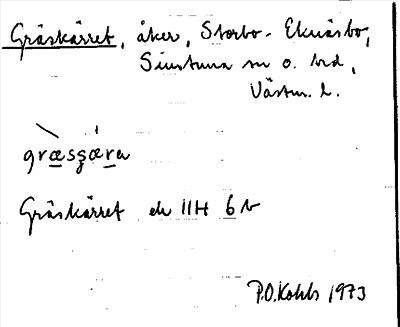 Gräskärret, åker, Storbo-Eknäsbo,
Simtuna sn o. hd,
Västm. l.
græsgæra
Gräskärret ek 11H 6 b
P.O.Kohls 1973